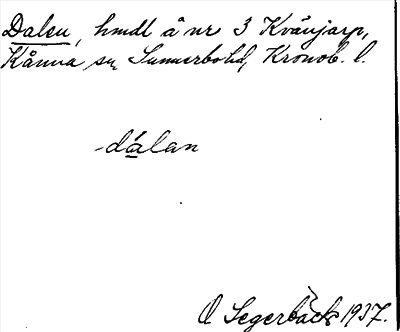 Dalen, hmdl å nr 3 Kvänjarp,
Kånna sn, Sunnerbo hd, Kronob. l.
-dálan
O Segerbäck 1937.